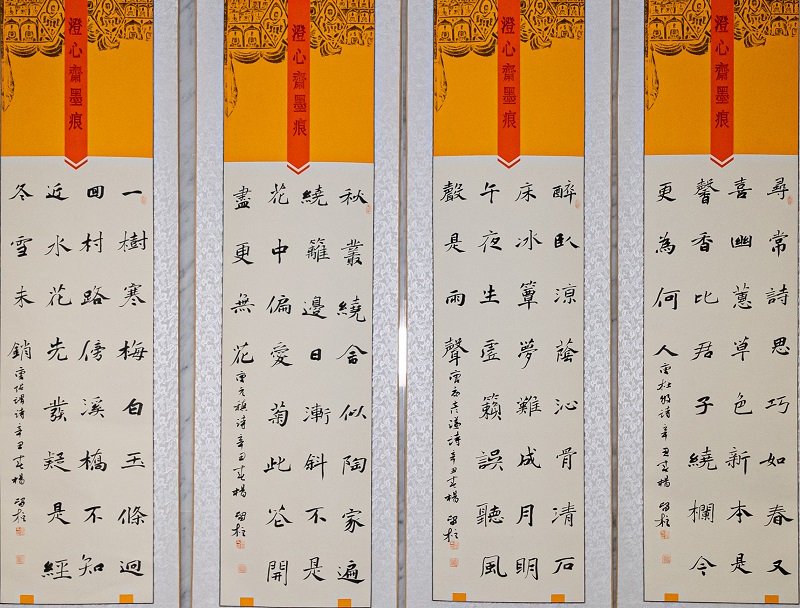 澄心齋墨痕
尋常詩思巧如春又
喜幽蕙草色新本是
馨香比君子繞欄今
更為何人
唐杜牧诗辛丑春楊
澄心齋墨痕
醉臥涼蔭沁骨清石
床冰簟夢難成月明
午夜生虛籟誤聽風
聲是雨聲
诗辛丑春楊
澄心齋墨痕
秋叢繞舍似陶家遍
繞籬邊日漸斜不是
花中偏愛菊此花開
盡更無花
唐元稹诗辛丑春楊
澄心齋墨痕
一樹寒梅白玉條迥
回村路傍溪橋不知
近水花先發疑是經
冬雪未銷
诗辛丑春楊